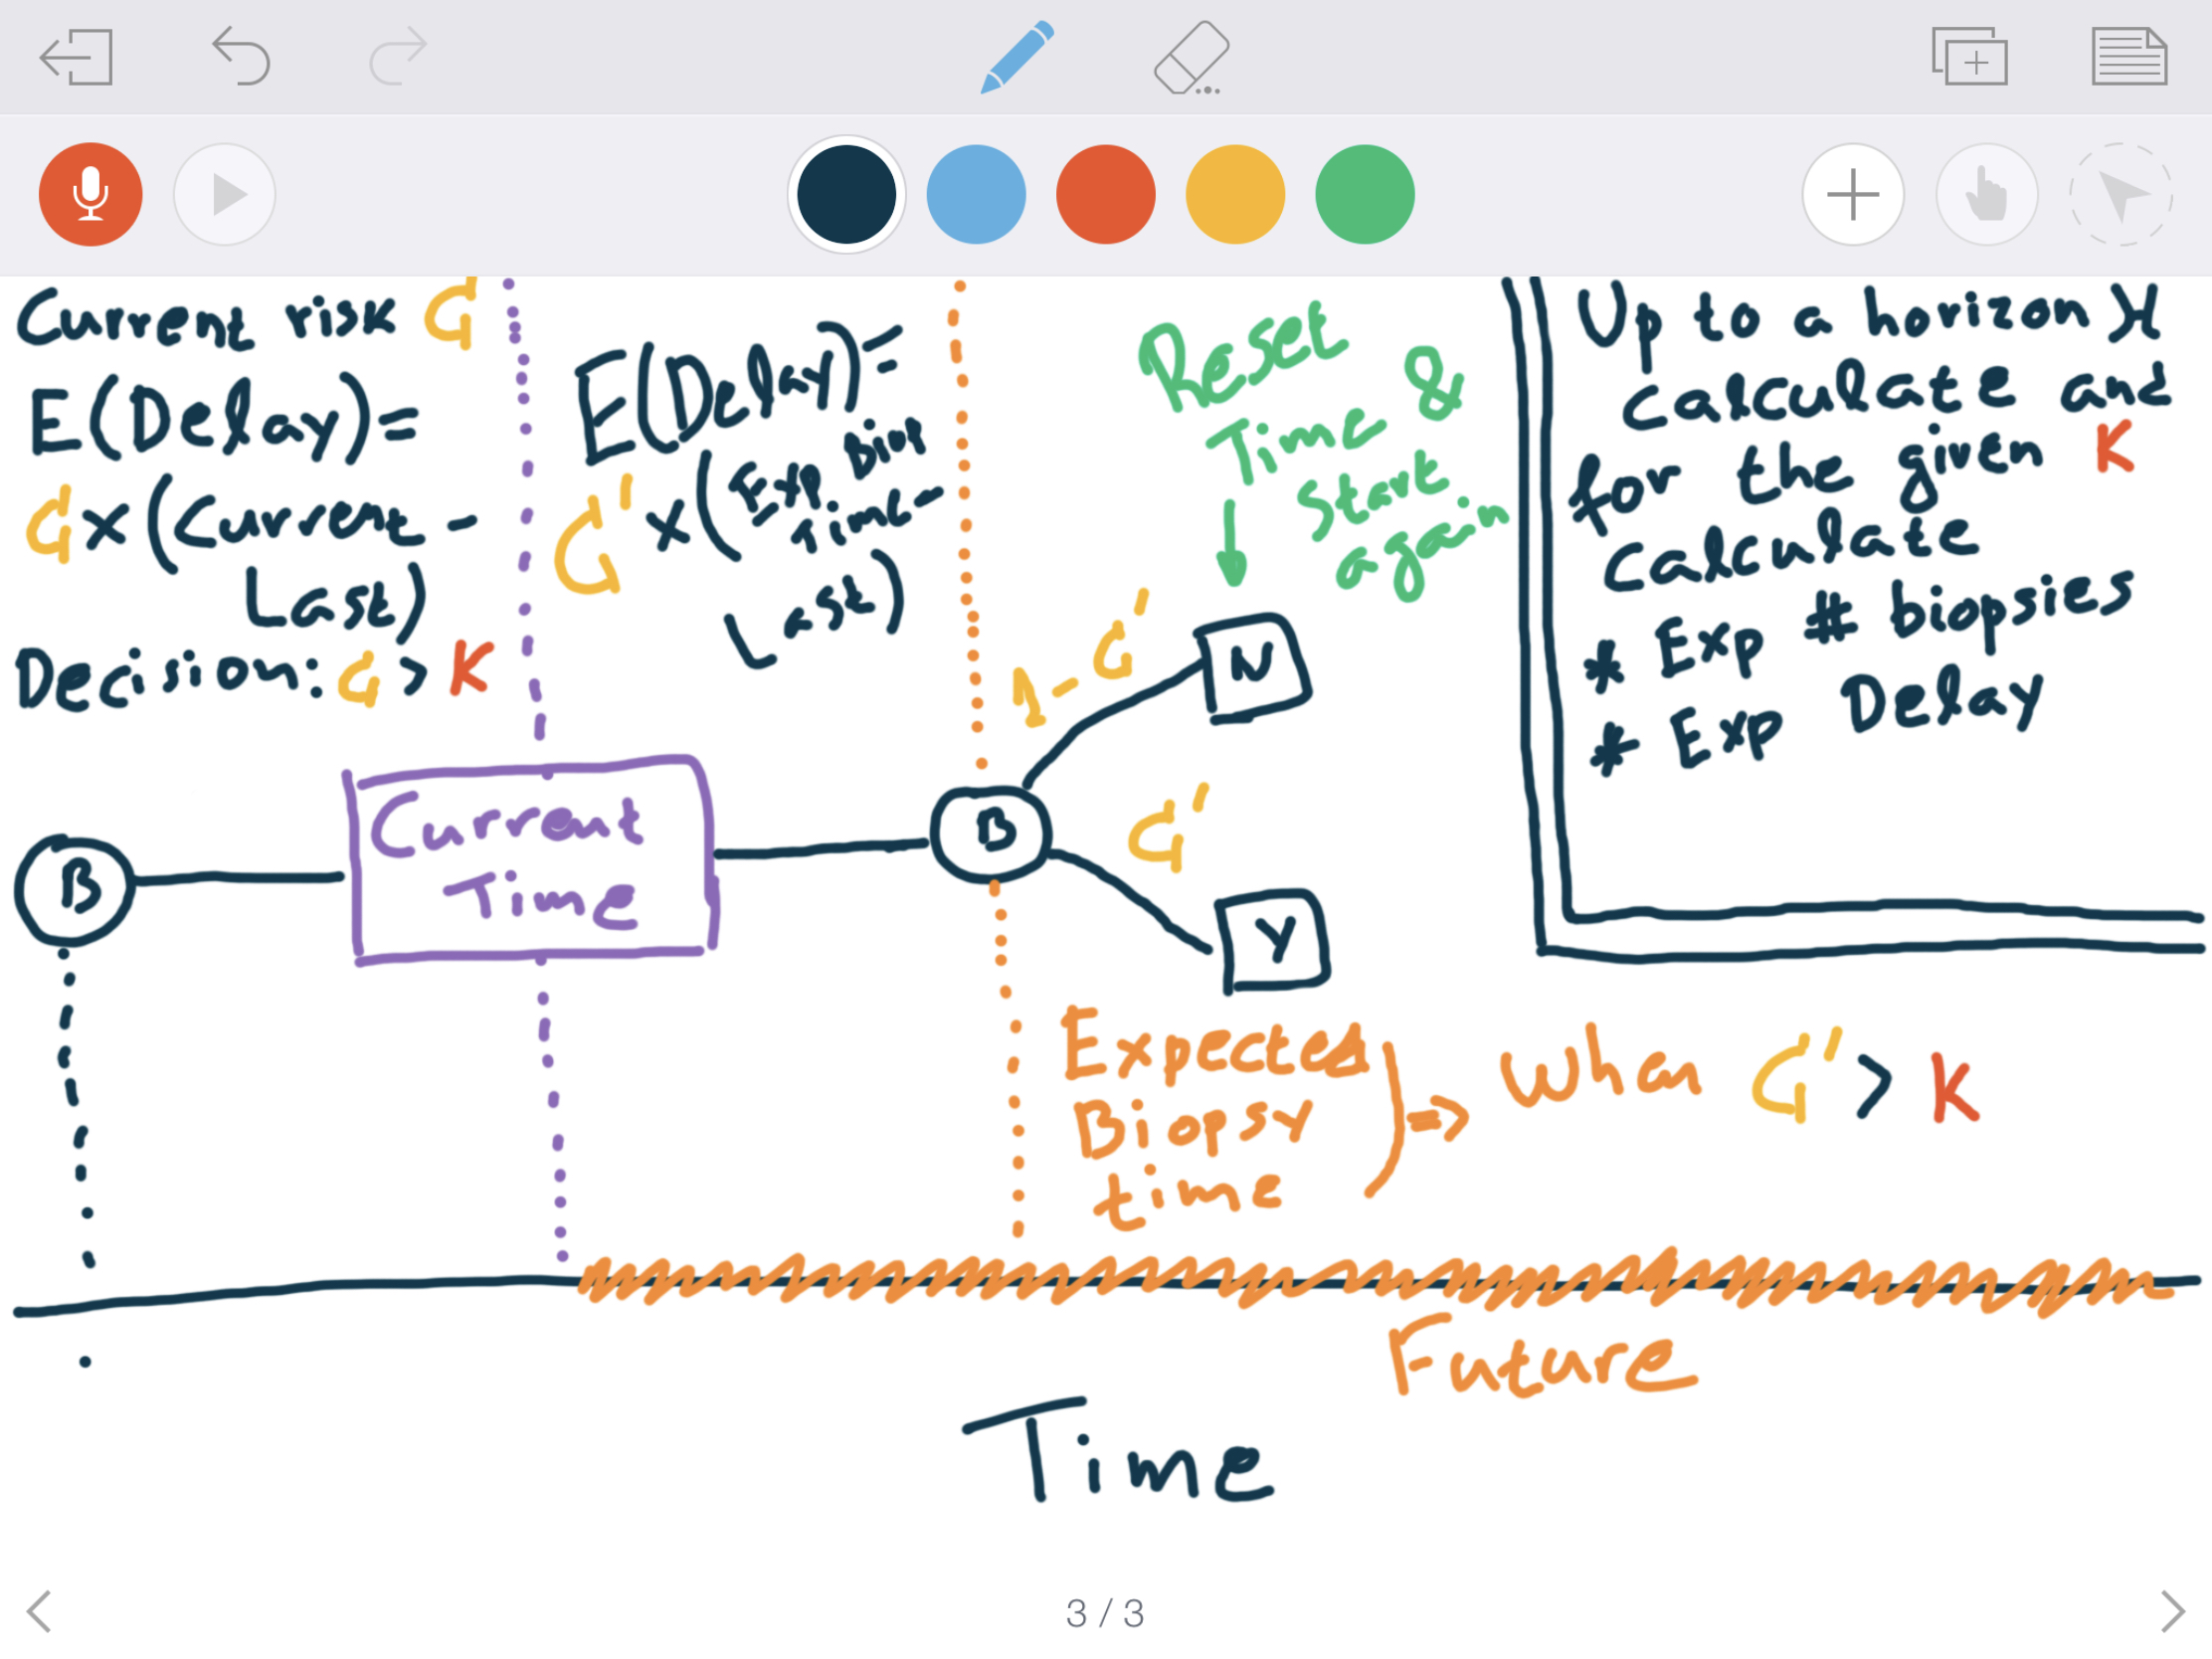 Current risk G
E(Delay)=
G x (Current -
Last)
Decision: G > K
E(Delay)=
G' x (Exp Biop
Time -
Last)
Reset
Time &
Start
again
Up to a horizon H
calculate and
for the given K
calculate
* Exp # biopsies
* Exp Delay
B
Current
Time
B
1-G'
N
G'
Y
Expected
Biopsy
time
) => When G' > K
Future
Time
3 / 3